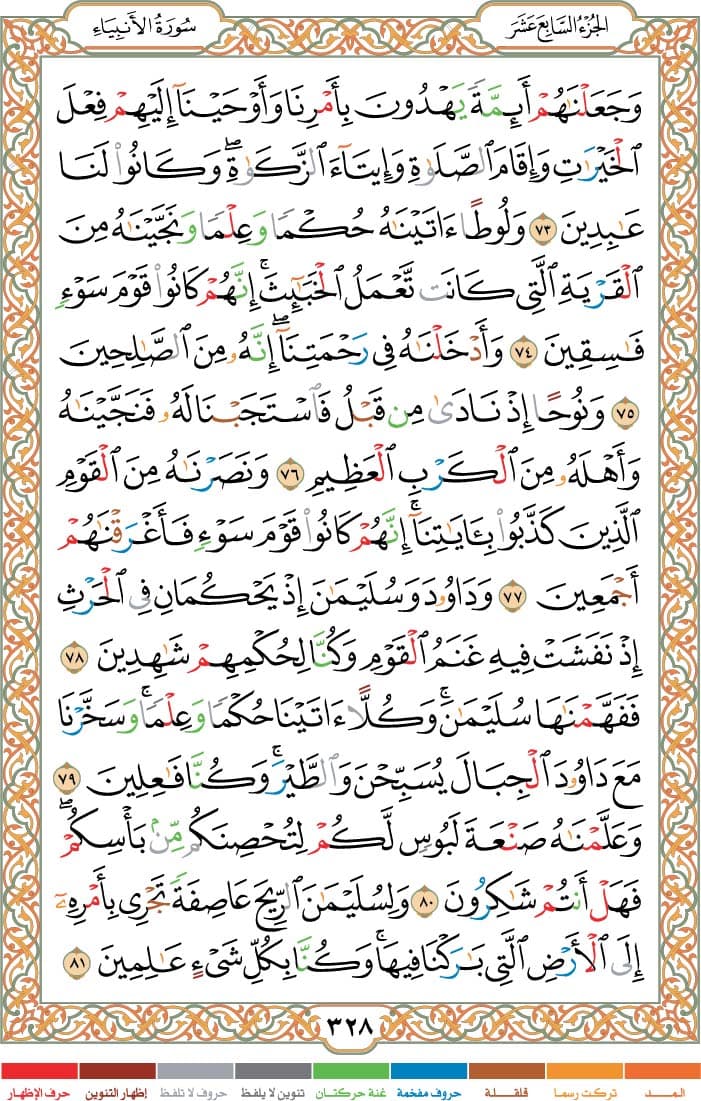 سُورَةُ الأَنبِيَاءِ
الجُزْءُ السَّابِعَ عَشَرَ
وَجَعَلْنَٰهُمْ أَئِمَّةً يَهْدُونَ بِأَمْرِنَا وَأَوْحَيْنَآ إِلَيْهِمْ فِعْلَ
ٱلْخَيْرَٰتِ وَإِقَامَ ٱلصَّلَوٰةِ وَإِيتَآءَ ٱلزَّكَوٰةِ ۖ وَكَانُوا۟ لَنَا
عَٰبِدِينَ ٧٣ وَلُوطًا ءَاتَيْنَٰهُ حُكْمًا وَعِلْمًا وَنَجَّيْنَٰهُ مِنَ
ٱلْقَرْيَةِ ٱلَّتِى كَانَت تَّعْمَلُ ٱلْخَبَٰٓئِثَ ۗ إِنَّهُمْ كَانُوا۟ قَوْمَ سَوْءٍ
فَٰسِقِينَ ٧٤ وَأَدْخَلْنَٰهُ فِى رَحْمَتِنَآ ۖ إِنَّهُۥ مِنَ ٱلصَّٰلِحِينَ
٧٥ وَنُوحًا إِذْ نَادَىٰ مِن قَبْلُ فَٱسْتَجَبْنَا لَهُۥ فَنَجَّيْنَٰهُ
وَأَهْلَهُۥ مِنَ ٱلْكَرْبِ ٱلْعَظِيمِ ٧٦ وَنَصَرْنَٰهُ مِنَ ٱلْقَوْمِ
ٱلَّذِينَ كَذَّبُوا۟ بِـَٔايَٰتِنَآ ۚ إِنَّهُمْ كَانُوا۟ قَوْمَ سَوْءٍ فَأَغْرَقْنَٰهُمْ
أَجْمَعِينَ ٧٧ وَدَاوُۥدَ وَسُلَيْمَٰنَ إِذْ يَحْكُمَانِ فِى ٱلْحَرْثِ
إِذْ نَفَشَتْ فِيهِ غَنَمُ ٱلْقَوْمِ وَكُنَّا لِحُكْمِهِمْ شَٰهِدِينَ ٧٨
فَفَهَّمْنَٰهَا سُلَيْمَٰنَ ۚ وَكُلًّا ءَاتَيْنَا حُكْمًا وَعِلْمًا ۚ وَسَخَّرْنَا
مَعَ دَاوُۥدَ ٱلْجِبَالَ يُسَبِّحْنَ وَٱلطَّيْرَ ۚ وَكُنَّا فَٰعِلِينَ ٧٩
وَعَلَّمْنَٰهُ صَنْعَةَ لَبُوسٍ لَّكُمْ لِتُحْصِنَكُم مِّنۢ بَأْسِكُمْ ۖ
فَهَلْ أَنتُمْ شَٰكِرُونَ ٨٠ وَلِسُلَيْمَٰنَ ٱلرِّيحَ عَاصِفَةً تَجْرِى بِأَمْرِهِۦٓ
إِلَى ٱلْأَرْضِ ٱلَّتِى بَٰرَكْنَا فِيهَا ۚ وَكُنَّا بِكُلِّ شَىْءٍ عَٰلِمِينَ ٨١
٣٢٨
المـــد تركت رسما قلقلة حروف مفخمة غنة حركتان تنوين لا يلفظ حروف لا تلفظ إظهار التنوين حرف الإظهار